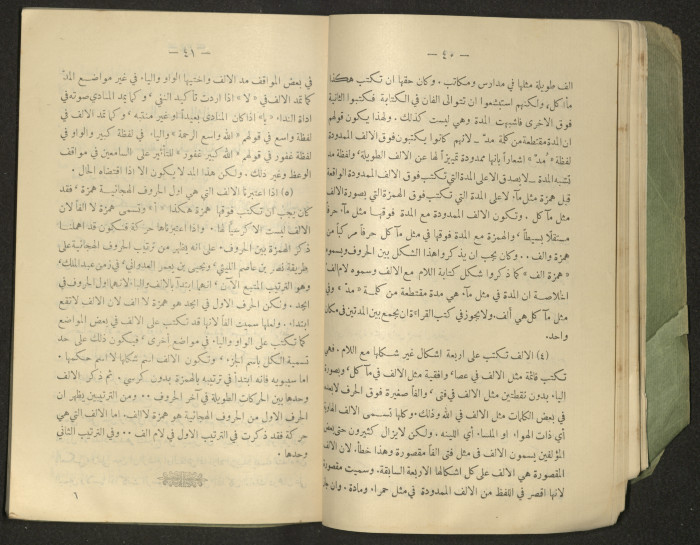 — ٤٠ —
الف طويلة مثلها في مدارس ومكاتب . وكان حقها ان تكتب هكذا
مأاكل ، ولكنهم استبشعوا ان تتوالى الفان في الكتابة فكتبوا الثانية
فوق الاخرى فاشبهت المدة وهي ليست كذلك . ولهذا يكون قولهم
ان المدة مقتطعة من كلمة مدّ _ لانهم كانوا يكتبون فوق الالف الممدودة
لفظة « مُد » اشعاراً بانها ممدودة تمييزاً لها عن الالف الطويلة ، ولفظة مد
تشبه المدة _ لا يصدق الا على المدة التي تكتب فوق الالف الممدودة الواقعة
قبل همزة مثل ماَء لا على المدة التي تكتب فوق الهمزة التي بصورة الالف
مثل مآكل . وتكون الالف الممدودة مع المدة فوقها مثل مآء حرفاً
مستقلاً بسيطاً ، والهمزة مع المدة فوقها في مثل مآكل حرفاً مركباً من
همزة والف . . وكان يجب ان يذكروا هذا الشكل بين الحروف ويسموه
« همزة الف » كما ذكروا شكل كتابة اللام مع الالف وسموه لام الف
الخلاصة ان المدة في مثل مآء هي مدة مقتطعة من كلمة « مدّ » وفي
مثل مآكل هي ألف ، ولا يجوز في كتب القراءة ان يجمع بين المدتين في مكان
واحد .
(٤) الالف تكتب على اربعة اشكال غير شكلها مع اللام . فهي
تكتب قائمة مثل الالف في عصا ، وافقية مثل الالف في مآكل ، وبصورة
الياء بدون نقطتين مثل الالف في فتى ، والفاً صغيرة فوق الحرف
في بعض الكلمات مثل الالف في الله وذلك . وكلها تسمى الالف
أي ذات الهواء او الملساء أي اللينه . ولكن لا يزال كثيرون حتى بعض
المؤلفين يسمون الالف في مثل فتى الفاً مقصورة وهذا خطأ ، لان الالف
المقصورة هي الالف على كل اشكالها الاربعة السابقة . وسميت مقصورة
لانها اقصر في اللفظ من الالف الممدودة في مثل حمراء ومادة . وان
— ٤١ —
في بعض المواقف مد الالف واختيها الواو والياء في غير مواضع المدّ
كما تمد الالف في « لا » اذا اردت تأكيد النفي ، وكما يمد المنادي صوته في
اداة النداء « يا » اذا كان المنادى بعيداً او غير منتبه ، وكما تمد الالف في
لفظة واسع في قولهم « الله واسع الرحمة » والياء في لفظة كبير والواو في
لفظة غفور في قولهم « الله كبير غفور » للتأثير على السامعين في مواقف
الوعظ وغير ذلك . ولكن هذا المد لا يكون الا اذا اقتضاه الحال .
(٥) اذا اعتبرنا الالف التي هي اول الحروف الهجائية همزة ، فقد
كان يجب ان تكتب فوقها همزة هكذا « أ » وتسمى همزة لا الفاً لان
الالف ليست الا كرسياً لها . واذا اعتبرناها حركة فنكون قد اهملنا
ذكر الهمزة بين الحروف . على انه يظهر من ترتيب الحروف الهجائية على
طريقة نصار بن عاصم الليثي ، ويحيى بن يعمر العدواني ، في زمن عبد الملك ،
وهو الترتيب المتبع الآن ، انهما ابتدآ بالالف والباء لانهما اول الحروف في
ابجد . ولكن الحرف الاول في ابجد هو همزة لا الف لان الالف لا تقع
ابتداء . ولعلها سميت الفاً لانها قد تكتب على الالف في بعض المواضع
كما تكتب على الواو والياء في مواضع أخرى ، فيكون ذلك على حد
تسمية الكل باسم الجزء ، وتكون الالف اسم شكلها لا اسم حكمها .
اما سيبويه فانه ابتدأ في ترتيبه بالهمزة بدون كرسي . ثم ذكر الالف
وحدها بين الحركات الطويلة في آخر الحروف . . ومن الترتيبين يظهر ان
الحرف الاول من الحروف الهجائية هو همزة لا الف . اما الالف التي هي
حركة فقد ذكرت في الترتيب الاول في لام الف . . وفي الترتيب الثاني
وحدها .
٦